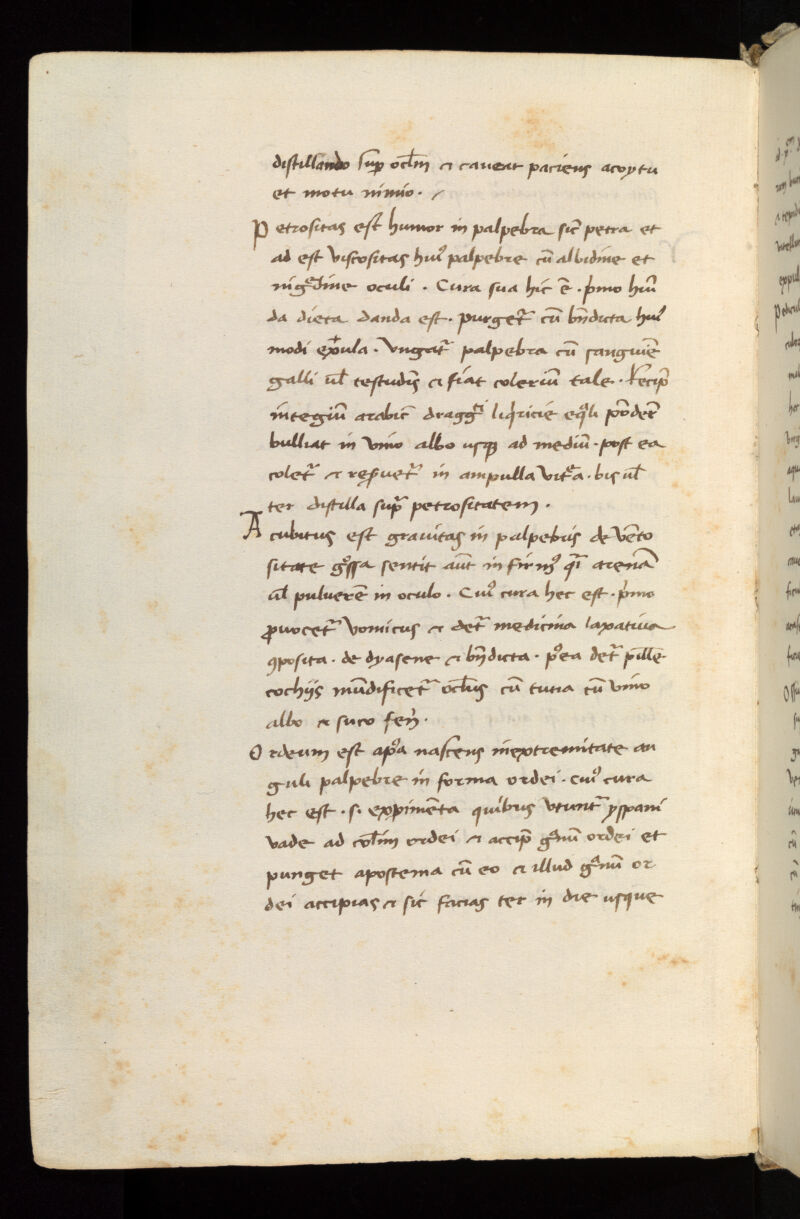 distillando sup ocl̄m et caveat paciens acoytu
et motu nimio.
Petrositas est humor in palpebra sic̄ petra et
ad est viscositas huiꝰ palpebre cū albidine et
nigᵃdine oculi . Cura sua hic ē . pͥmo hūi
da dieta danda est . purget᷑ cū bn̄dicta huiꝰ
modi
palpebra cū sanguīe
galli ul̄ testudīs et fiat coleriū tale . Recip̄
arabic̄ liqͥricie eqͣli pōder̄
bulliat in vino albo usqꝫ ad mediū . post ea
colet᷑ et reseruet᷑ in ampulla vitͬa . bis ul̄
ter distilla supͬ petrositatem .
Acubitus est gravitas in palpebris de vēto
sitate gͦssa sentit aūt infirmꝰ qͣi arenā
ul̄ pulverē in oculo . Cuiꝰ cura hec est . pͥmo
ꝓvocet᷑ vomitus et det᷑ medicina laxativa
ꝯposita . de dyasene et bn̄dicta . pꝰea det᷑ pill̄e
cochijs mūdificet᷑ ocl̄us cū tutia cū vino
albo et suco fen̄ .
Ordeum est apͦa nascens inextremitate an
guli palpebre in forma ordei . cuiꝰ cura
hec est . s . expimēta quibus utunt᷑ yspani
vade ad col̄im ordei et accip̄ gͣnū ordei et
punget apostema cū eo et illud gͣnū or
dei accipias et sic facias ter in die usque